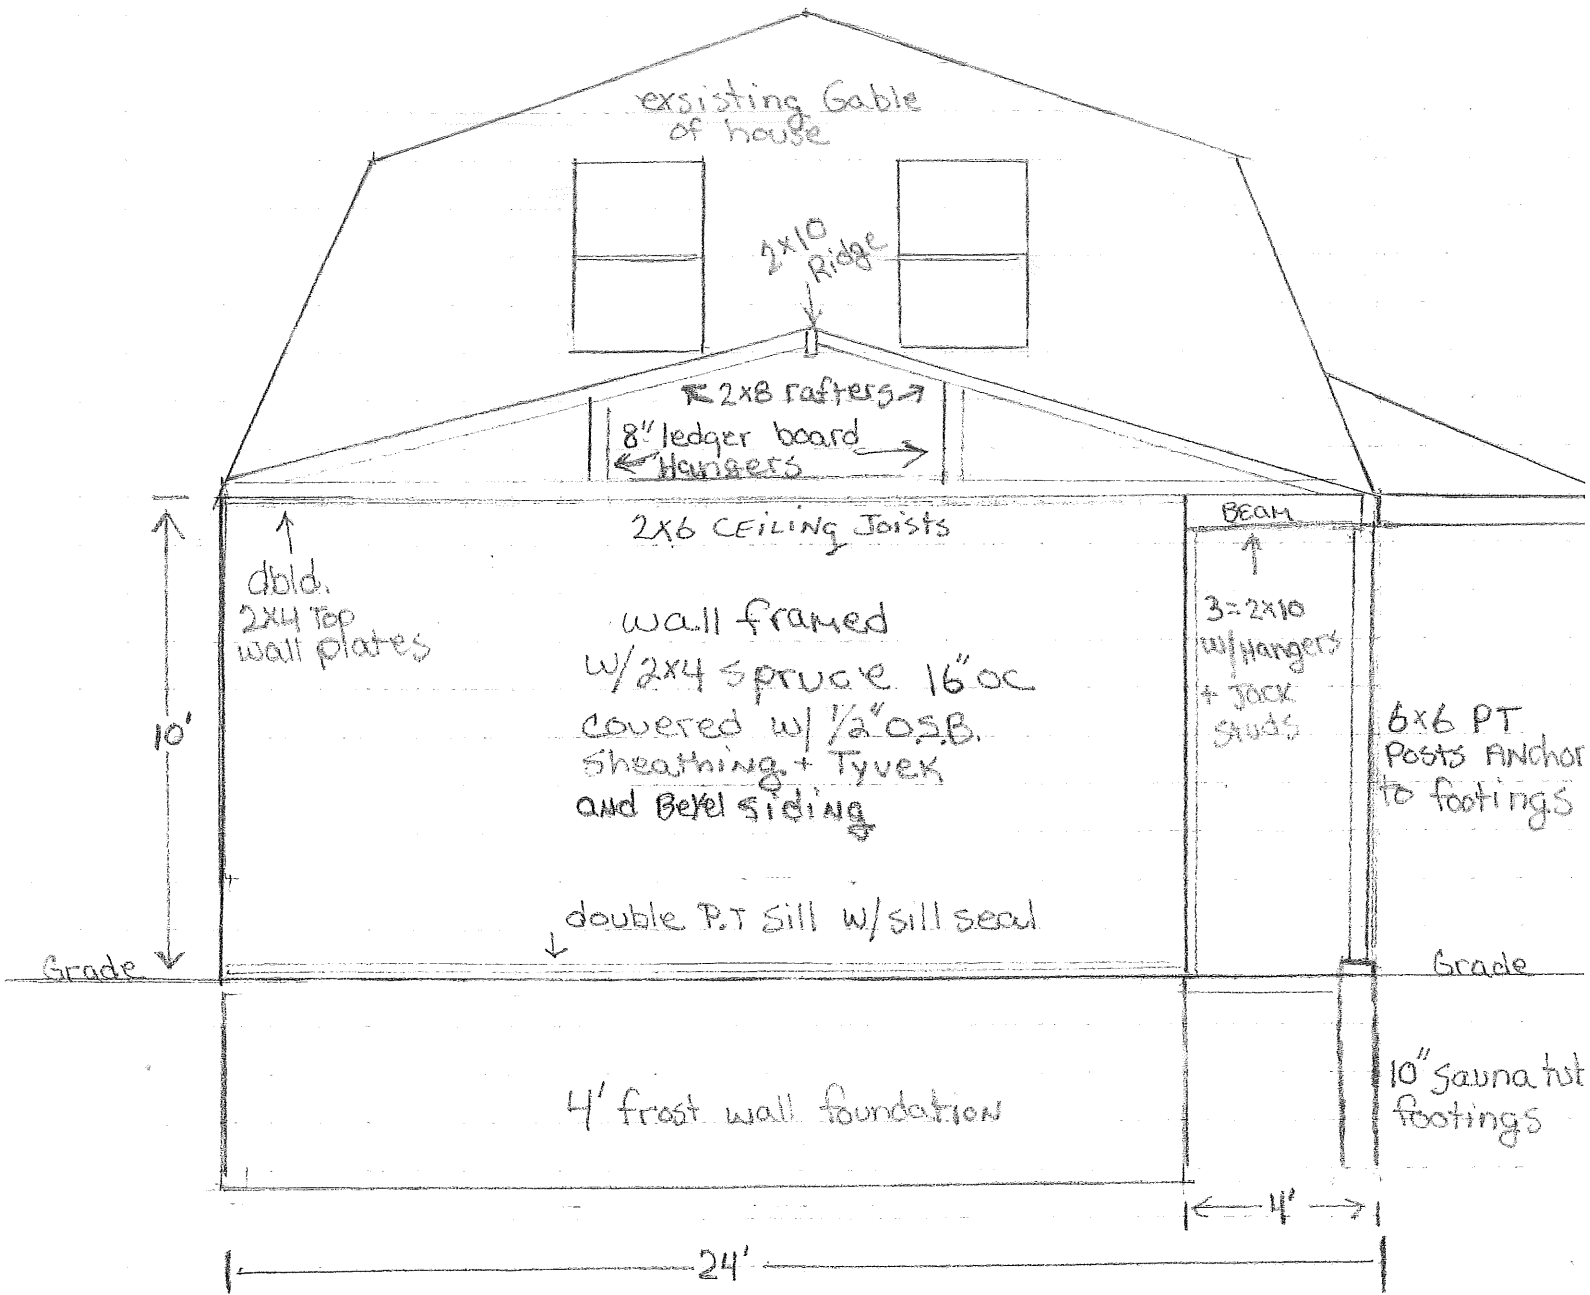 exsisting Gable
of house
2x10
Ridge
2x8 rafters
8" ledger board
Hangers
2x6 CEILING Joists
BEAM
dbld.
2x4 Top
wall plates
wall framed
w/2x4 spruce 16" oc
covered w/ 1/2" O.S.B.
Sheathing + Tyvek
and Bevel siding
3=2x10
w/Hangers
+ Jack
studs
10'
6x6 PT
Posts ANchor
to footings
double P.T sill w/sill seal
Grade
Grade
4' frost wall foundation
10" Sauna tub
footings
4'
24'